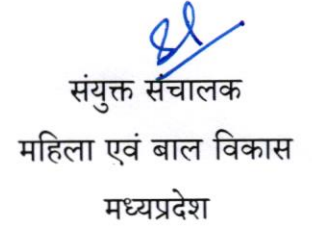 संयुक्त संचालक
महिला एवं बाल विकास
मध्यप्रदेश